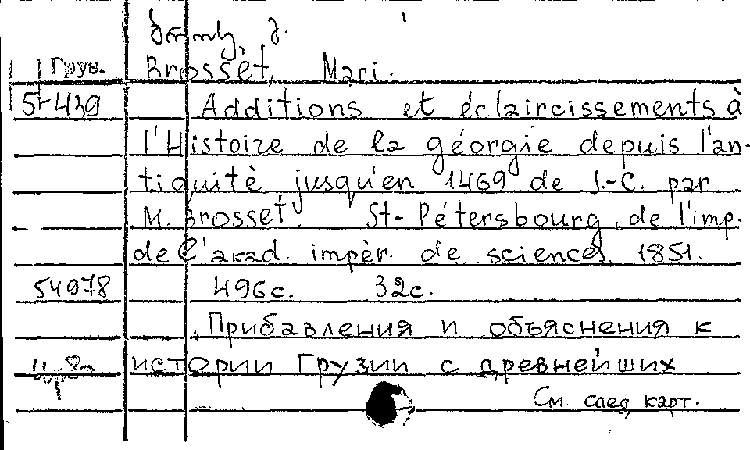 ბროსე მ.
Груз. Brosset, Mari.
5-439 Additions et éclaircissements à
l'Histoire de la géorgie depuis l'an-
tiquité jusqu'en 1469 de J.-C. par
M. Brosset. St-Pétersbourg, de l'imp.
de l'acad. impér. de sciences, 1851.
54078 496с. 32с.
Прибавления и объяснения к
истории Грузии с древнейших
См. след. карт.